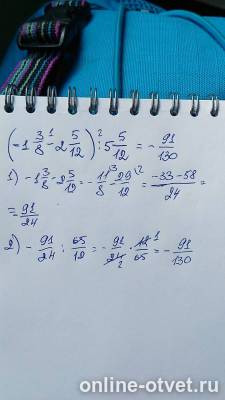 (-1 3/8 - 2 5/12) : 5 5/12 = - 91/130
1) -1 3/8 - 2 5/12 = - 11/8 - 29/12 = (-33-58)/24 =
= 91/24
2) - 91/24 : 65/12 = - 91/24 · 12/65 = - 91/130
online-otvet.ru